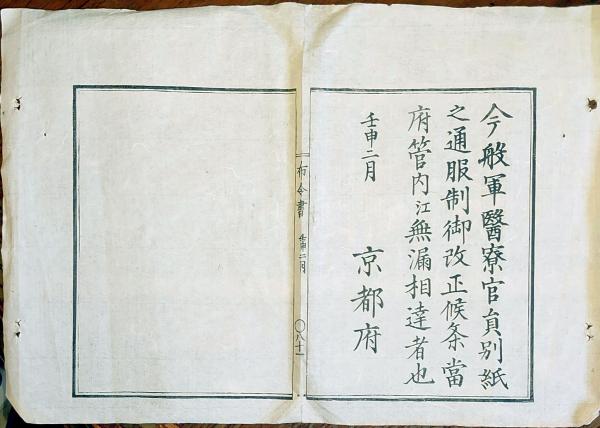 今般軍醫寮官員別紙
之通服制御改正候条當
府管内江無漏相達者也
壬申二月
京都府
布令書 壬申二月
〇八十一